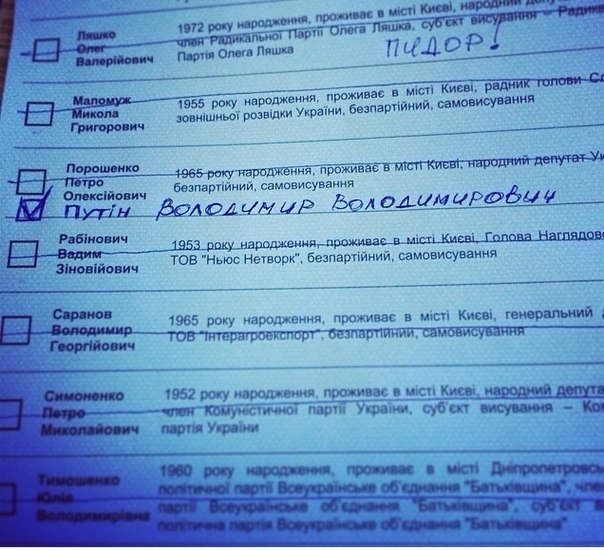 Ляшко
Олег
Валерійович
1972 року народження, проживає в місті Києві, народний
член Радикальної Партії Олега Ляшка, суб'єкт висування – Радика
Партія Олега Ляшка
ПИДОР!
Маломуж
Микола
Григорович
1955 року народження, проживає в місті Києві, радник голови
зовнішньої розвідки України, безпартійний, самовисування
Порошенко
Петро
Олексійович
1965 року народження, проживає в місті Києві, народний депутат
безпартійний, самовисування
Путін Володимир Володимирович
Рабінович
Вадим
Зіновійович
1953 року народження, проживає в місті Києві, Голова Наглядов
ТОВ "Ньюс Нетворк", безпартійний, самовисування
Саранов
Володимир
Георгійович
1965 року народження, проживає в місті Києві, генеральний
ТОВ "Інтерагроекспорт", безпартійний, самовисування
Симоненко
Петро
Миколайович
1952 року народження, проживає в місті Києві, народний депута
член Комуністичної партії України, суб'єкт висування – Ком
партія України
Тимошенко
Юлія
Володимирівна
1960 року народження, проживає в місті Дніпропетровсь
політичної партії Всеукраїнське об'єднання "Батьківщина", член
партії Всеукраїнське об'єднання "Батьківщина", суб'єкт
політична партія Всеукраїнське об'єднання "Батьківщина"